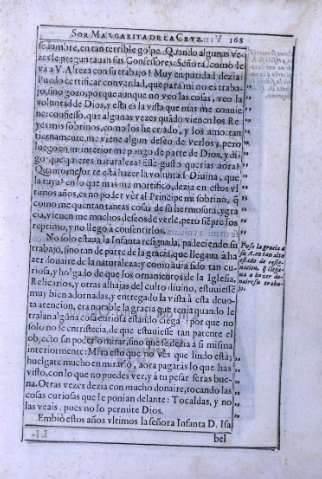 SOR MARGARITA DE LA CRVZ. 168
seaumbre, en tan terrible golpe. Quando algunas ve-
zes le preguntauan sus Confessores, Señora, como le
va a V. Alteza con su trabajo? Muy en paz (la dezia)
Puedo certificar con verdad, que para mi no es traba-
jo, sino gozo, porque aunque no veo las cosas, veo la
voluntad de Dios, y esta es la vista que mas me conuie
ne: confiesso, que algunas vezes quãdo vienen los Re
yes mis sobrinos, como los he criado, y los amo tan
tiernamente me viene algun deseo de verlos, y pero
luego en mi interior me pongo de parte de Dios, y di
go: que quieres naturaleza? esse gusto querias aora?
Quanto mejor te està hazer la voluntad Diuina, que
la tuya? en lo que mas me mortifico, dezia en estos vl
timos años, es no poder vèr al Principe mi sobrino, q̃
como me quentan tantas cosas de su hermosura, y gra
cia, vienen me muchos deseos de verle, pero siẽpre los
reprimo, y no llego a consentirlos.
No solo estaua la Infanta resignada, padeciendo su
trabajo, sino tan de parte de la gracia, que llegaua a ha
zer donaire de la naturaleza; y como auia sido tan cu-
riosa, y holgado de que los ornamentos de la Iglesia,
Relicarios, y otras alhajas del culto diuino, estuuiesse
muy bien adornadas, y entregado la vista à esta deuo-
ta atencion, era notable la gracia que tenia quando le
traian alguna cosa curiosa estando ciega: porque no
solo no se entristecia, de que estuuiesse tan patente el
objecto sin poderlo mirar, sino que se dezia à si misma
interiormente: Mira esto que no vès que lindo està;
holgaste mucho en mirarlo, aora pagaràs lo que has
visto, con lo que no puedes ver, y à tu pesar seras bue-
na. Otras vezes dezia con mucho donaire, tocando las
cosas curiosas que le ponian delante: Tocaldas, y no
las veais, pues no lo permite Dios.
Embiò estos años vltimos la señora Infanta D. Isa
bel
Passa la gracia a
su A. con tan alto
estado de resig-
nacion, q̃ llega-
ua a hazer do-
naire de su traba-
jo.